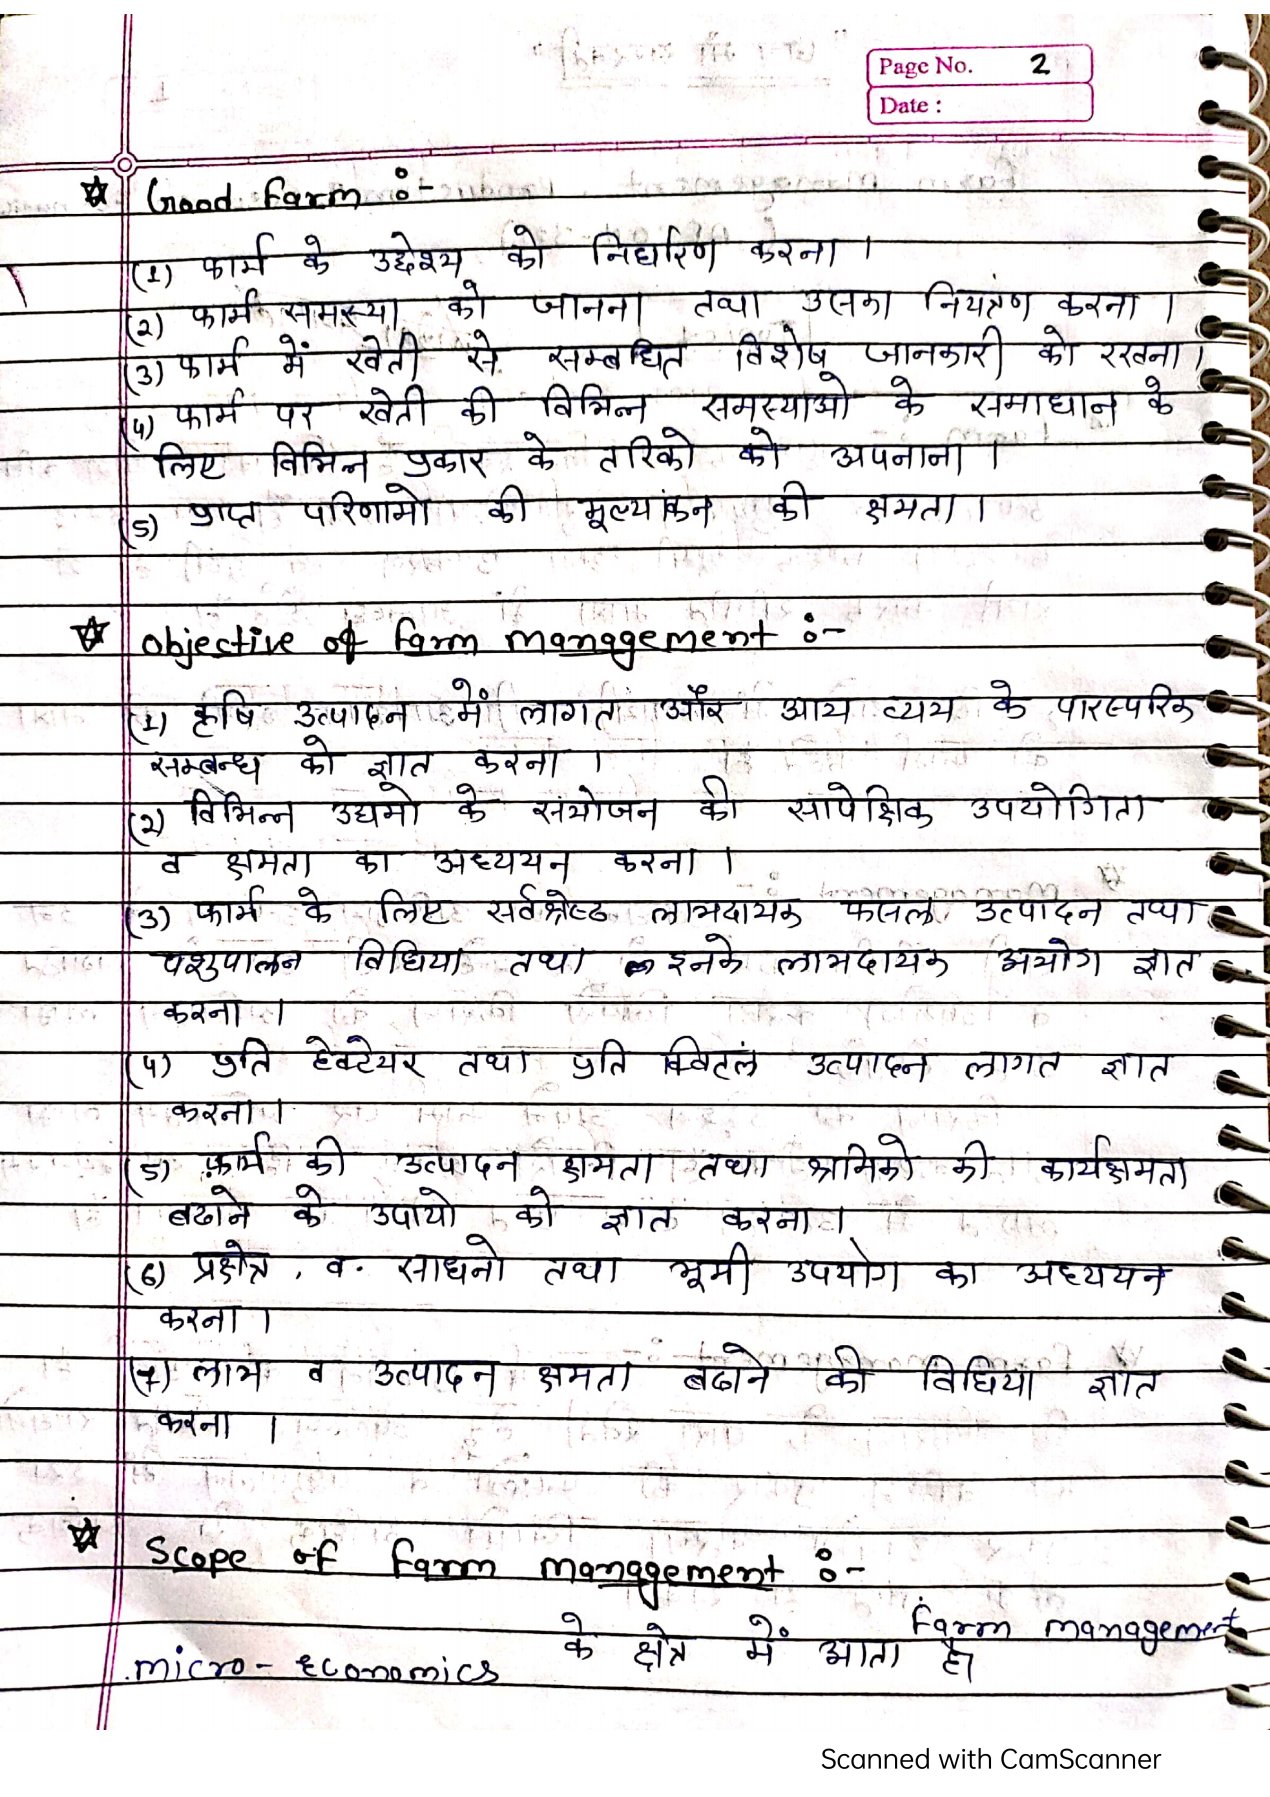 Page No. 2
Date :
☆ Good Farm :-
(1) फार्म के उद्देश्य को निर्धारण करना ।
(2) फार्म समस्या को जानना तथा उसका नियंत्रण करना ।
(3) फार्म में खेती से सम्बधित विशेष जानकारी को रखना ।
(4) फार्म पर खेती की विभिन्न समस्याओ के समाधान के
लिए विभिन्न प्रकार के तरिको को अपनाना ।
(5) प्राप्त परिणामो की मूल्यांकन की क्षमता ।
☆ Objective of Farm management :-
(1) कृषि उत्पादन में लागत और आय व्यय के पारस्परिक
सम्बन्ध को ज्ञात करना ।
(2) विभिन्न उद्यमो के संयोजन की सापेक्षिक उपयोगिता
व क्षमता का अध्ययन करना ।
(3) फार्म के लिए सर्वश्रेष्ठ लाभदायक फसल उत्पादन तथा
पशुपालन विधिया तथा इनके लाभदायक ज्ञात
करना ।
(4) प्रति हेक्टेयर तथा प्रति उत्पादन लागत ज्ञात
करना ।
(5) फार्म की उत्पादन क्षमता तथा श्रमिको की कार्यक्षमता
बढाने के उपायो को ज्ञात करना ।
(6) प्रक्षेत्र व साधनो तथा भूमी उपयोग का अध्ययन
करना ।
(7) लाभ व उत्पादन क्षमता बढाने की विधिया ज्ञात
करना ।
☆ Scope of Farm management :-
Farm management
micro-economics के क्षेत्र में आता है।
Scanned with CamScanner